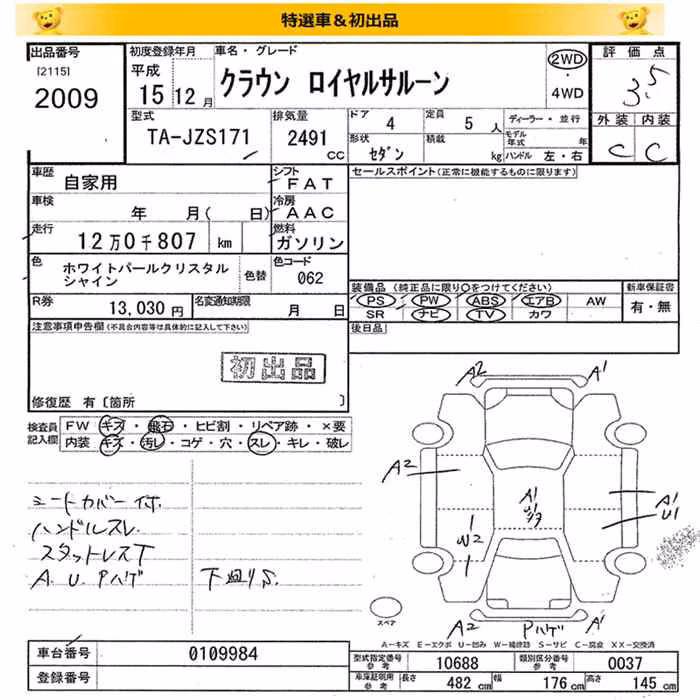 特選車&初出品
出品番号
[2115]
2009
初度登録年月
平成
15年 12月
車名・グレード
クラウン ロイヤルサルーン
2WD
・
4WD
評価点
3.5
外装 内装
C C
型式
TA-JZS171
排気量
2491
CC
ドア 4
定員 5 人
形状 セダン
積載 kg
ディーラー・並行
モデル年式 年
ハンドル 左・右
車歴
自家用
シフト
FAT
車検
年 月( 日)
冷房
AAC
走行
12万0千807 km
燃料
ガソリン
色
ホワイトパールクリスタル
シャイン
色替
色コード
062
R券
13,030円
名変通知期限
月 日
セールスポイント(正常に機能するものに限ります)
装備品(純正品に限り○をつけてください)
PS PW ABS エアB AW
SR ナビ TV カワ
新車保証書
有・無
後日品
注意事項申告欄(不具合内容等は具体的に記入して下さい)
初出品
修復歴 有〔箇所 〕
検査員
記入欄
FW キズ・飛石・ヒビ割・リペア跡・×要
内装 キズ・汚レ・コゲ・穴・スレ・キレ・破レ
シートカバー付.
ハンドルスレ
スタットレスT
A. U. Pハゲ 下廻りS.
A2 A1
A2
A1
A1
U1
W2
A2 Pハゲ A1
スペア
A-キズ E-エクボ U-凹み W-補修跡 S-サビ C-腐食 XX-交換済
車台番号
0109984
登録番号
型式指定番号
参考
10688
類別区分番号
参考
0037
車庫証明用
参考
長さ 482 cm 幅 176 cm 高さ 145 cm